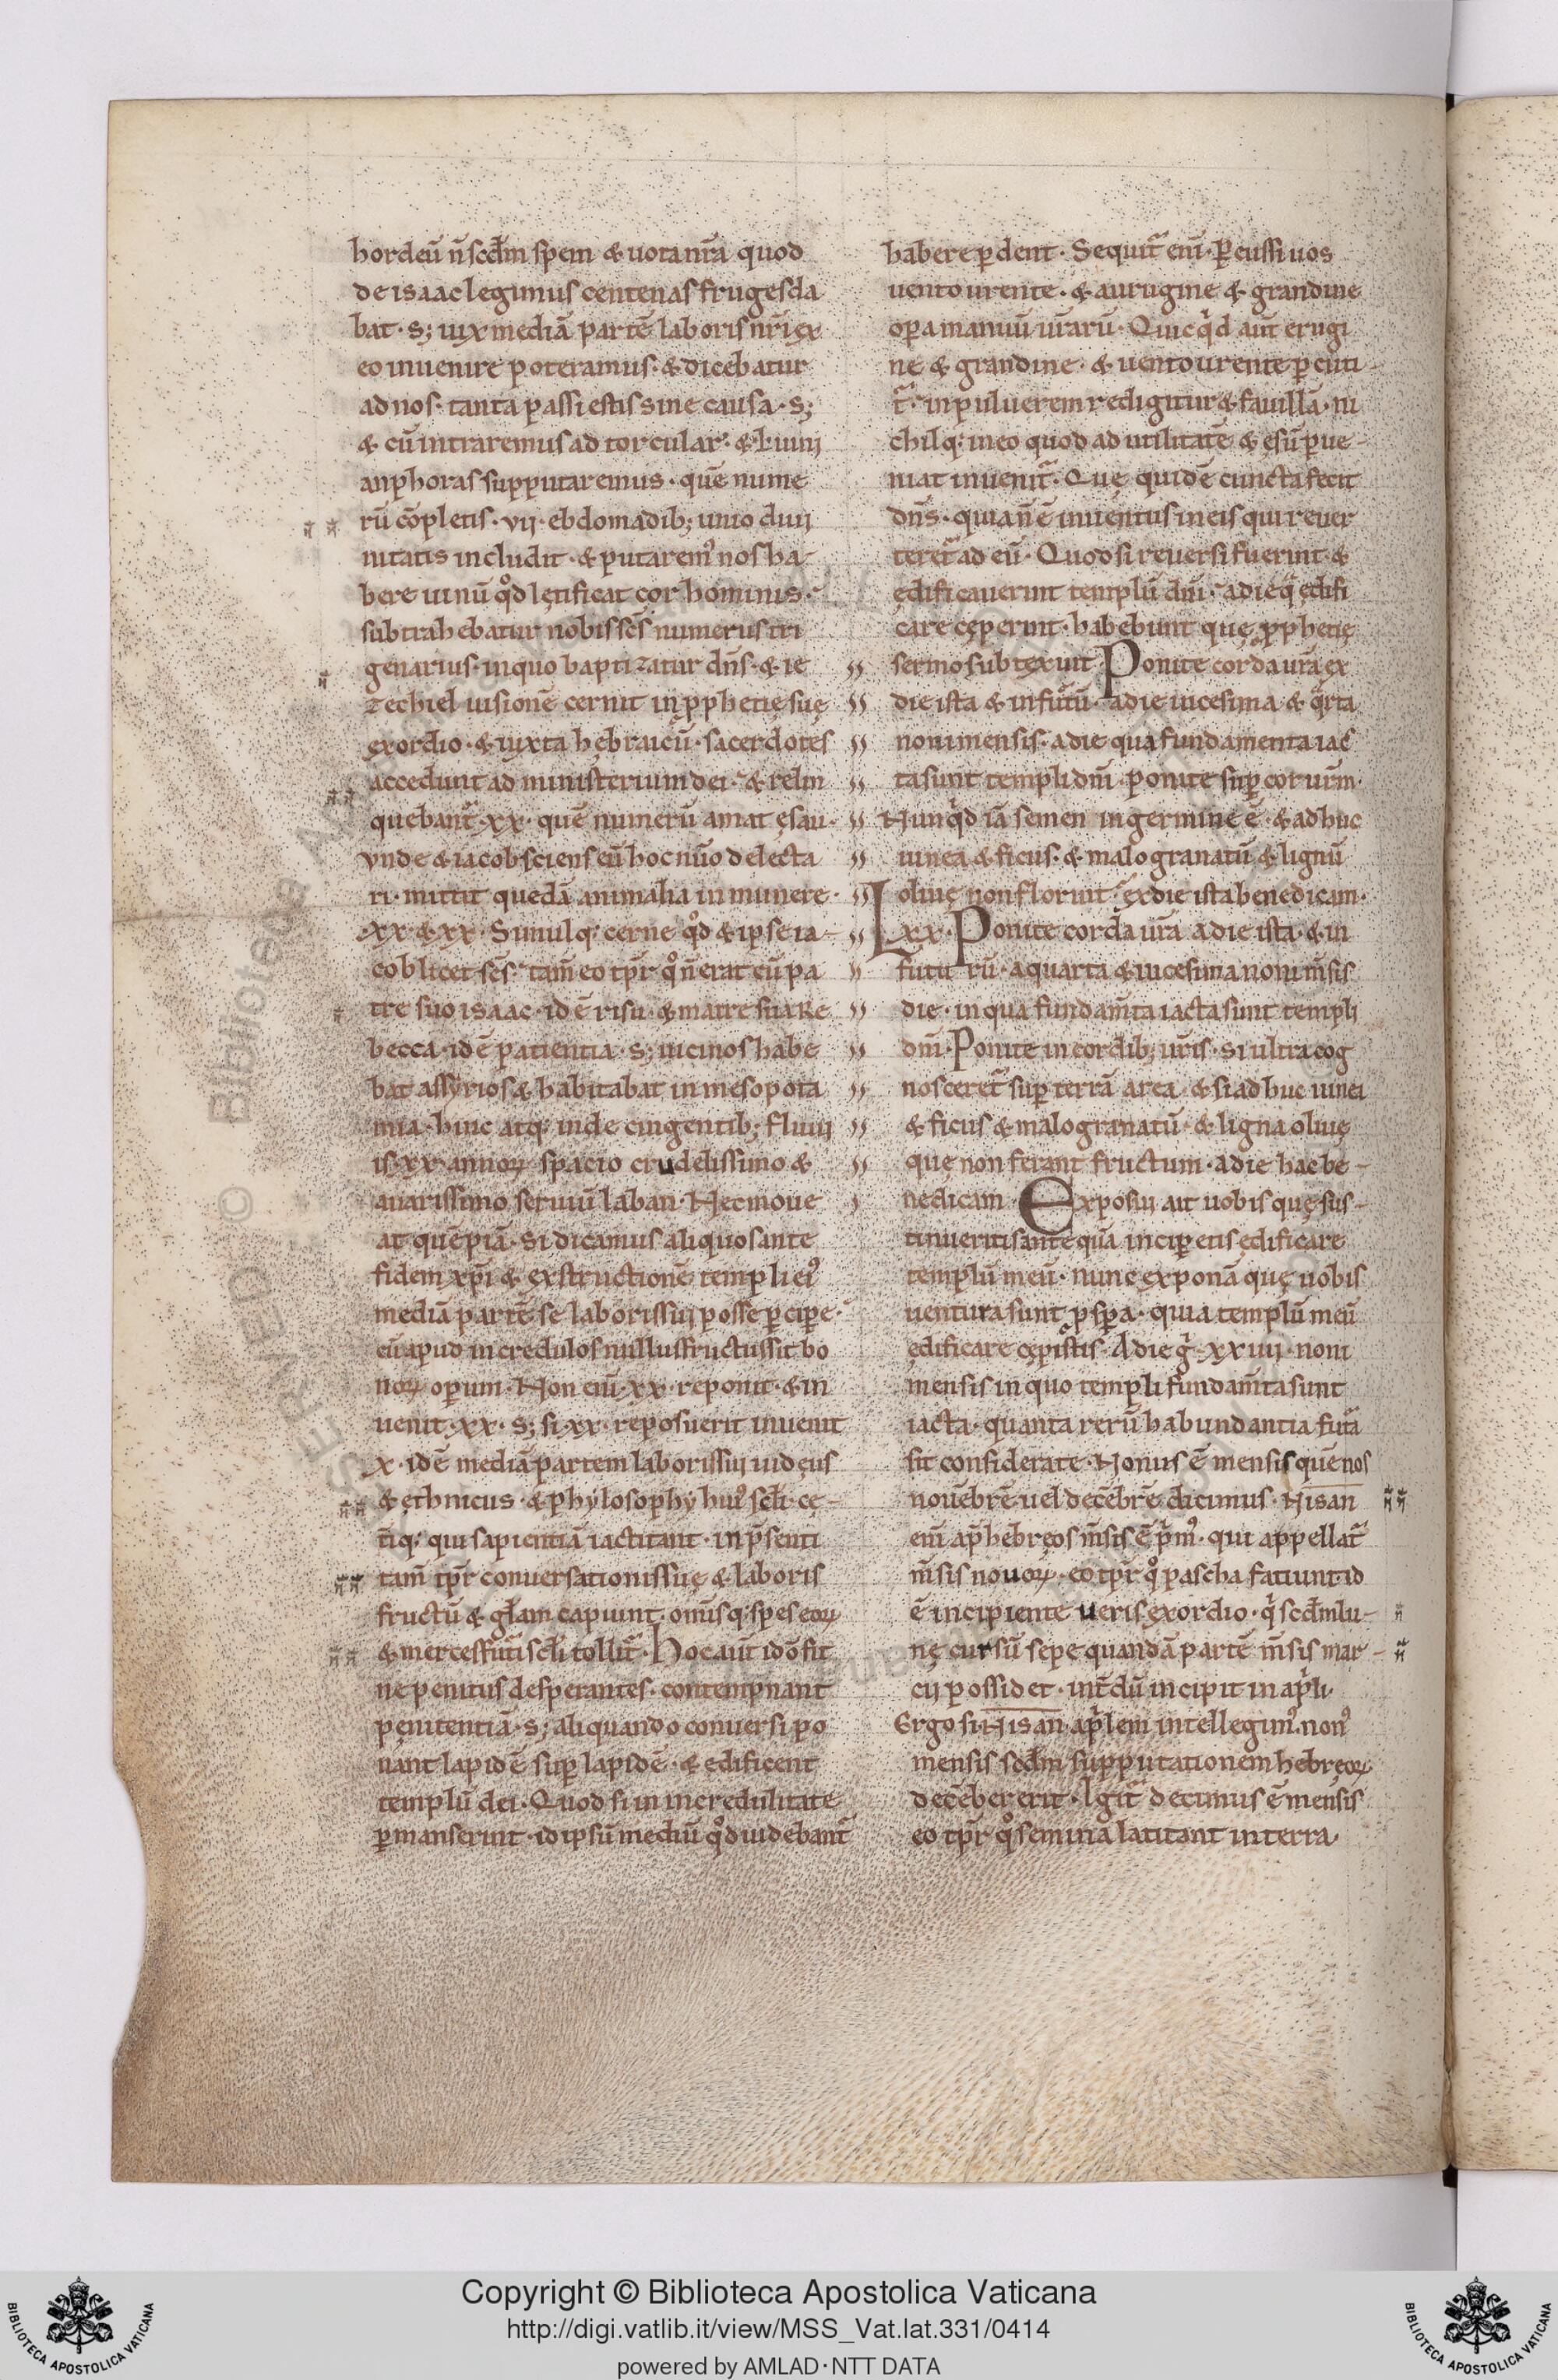 hordeū ñ scđm spem & uota nr̄a quod
de isaac legimus centenas fruges da
bat · s; uix mediā partē laboris nr̄i ex
eo inuenire poteramus · & dicebatur
ad nos · tanta passi estis sine causa · s;
& cū intraremus ad torcular · & l·uiiij
anphoras supputaremus · quē nume
rū cōpletis · vij · ebdomadib; unio diui
nitatis includit · & putarem᾿ nos ha-
bere uinū qd̊ lętificat cor hominis ·
subtrahebatur nobis ses̄ numerus tri
genarius · in quo baptizatur dn̄s · & ie
zechiel uisionē cernit in p̱phetię suę
exordio · & iuxta hębraicū · sacerdotes
accedunt ad ministerium dei · & relin
quebant᷑ · xx · quē numerū amat ęsau ·
vnde & iacob sciens eū hoc nūo delecta
ri · mittit quedā animalia in munere ·
·xx· & xx · Simulq; cerne qd̊ & ipse ia-
cob licet ses̄ · tam̄ eo tp̄r q̊ ñ erat cū pa
tre suo isaac · id ē risu · & matre sua Re
becca · id ē patientia · s; uicinos habe
bat assyrios & habitabat in mesopota
mia · hinc atq; inde cingentib; fluuij
is · xx · annoꝝ spacio crudelissimo &
auarissimo seruiuit laban · Nec moue
at quēpiā · si dicamus aliquos ante
fidem xp̄i & exstructionē templi ei᾿
mediā partē se laboris sui posse ꝑcipe ·
cū apud incredulos nullus fructus sit bo
noꝝ operum · Non eni᷑ · xx · reponit · & in
uenit · xx · s; si xx · reposuerit inuenit
x · id ē mediā partem laboris sui iudęus
& ęthnicus · & phylosophy hui᾿ sc̄li · cę-
tiq; qui sapientiā iactitant · in p̄senti
tam̄ tp̄r conuersationis suę & laboris
fructū & gl̄am capiunt · omīsq; spes eoꝝ
& merces fut᷑i sc̄li tollit᷑ · Hoc aut̄ idō fit
ne penitus desperantes · contempnant
pęnitentiā · s; aliquando conuersi po
nant lapidē suꝑ lapidē · & edificent
templū dei · Quod si in incredulitate
ꝑmanserint · id ipsū mediū qd̊ uidebant᷑
habere ꝑdent · Sequit᷑ eni᷑ · Ꝑcussi uos
uento urente · & aurugine & grandine
oꝑa manuū ur̄arū · Quicq̊d aut̄ erugi
ne & grandine · & uento urente ꝑcuti-
t᷑ · in puluerem redigitur & fauillā · ni
chilq; in eo quod ad utilitatē & esū ꝑue-
niat inuenit᷑ · Quę quidē cuncta fecit
dn̄s · quia ñ ē inuentus in eis qui reuer
teret᷑ ad eū · Quod si reuersi fuerint · &
ędificauerint templū dnī · a die q̄ ędifi
care cęperint · habebunt quę p̱phetię
sermo subtexuit · Ponite corda ur̄a ex
die ista & in fut᷑ū · a die uicesima & q̄rta
noni mensis · a die qua fundamenta iac̄
ta sunt templi dn̄i · ponite suꝑ cor ur̄m ·
Nunq̊d iā semen in germine ē · & adhuc
uinea & ficus · & malogranatū & lignū
oliuę non floruit · ex die ista benedicam ·
Lxx · Ponite corda ur̄a a die ista · & in
futurū · a quarta & uicesima noni m̄sis
die · in qua fundam̄ta iacta sunt templi
dn̄i · Ponite in cordib; ur̄is · si ultra cog
nosceret᷑ suꝑ terrā area · & si adhuc uinea
& ficus & malogranatū · & ligna oliuę
que non ferant fructum · a die hac be-
nedicam · Exposui ait uobis quę sus-
tinueritis ante quā inciꝑetis ędificare
templū meū · nunc exponā quę uobis
uentura sunt p̱sꝑa · quia templū meū
ędificare cępistis · A die g̊ · xxiiii · noni
mensis in quo templi fundam̄ta sunt
iacta · quanta rerū habundantia fut᷑a
sit considerate · Nonus ē mensis quē nos
nouēbrē uel decēbrē dicimus · Nisan
eni᷑ ap̄ hebręos m̄sis ē p̊m᾿ · qui appellat᷑
m̄sis nouoꝝ · eo tp̄r q̊ pascha fatiunt · id
ē incipiente ueris exordio · q̊ scđm lu-
nę cursū sepe quandā partē m̄sis mar-
cij possidet · int̄dū incipit in ap̊li ·
Ergo si Nisan · ap̊lem intellegim᾿ · non᾿
mensis scđm supputationem hebręoꝝ
decēber erit · Igit᷑ decimus ē mensis
eo tp̄r q̊ semina latitant in terra ·
Copyright © Biblioteca Apostolica Vaticana
http://digi.vatlib.it/view/MSS_Vat.lat.331/0414
powered by AMLAD·NTT DATA
BIBLIOTECA APOSTOLICA VATICANA
BIBLIOTECA APOSTOLICA VATICANA